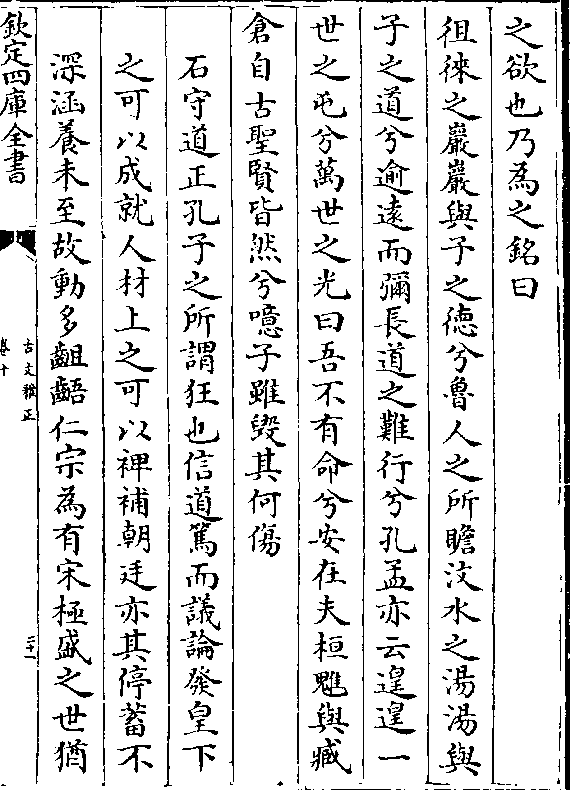 之欲也乃為之銘曰
徂徠之巖巖與子之徳兮魯人之所瞻汶水之湯湯與
子之道兮逾逺而彌長道之難行兮孔孟亦云遑遑一
世之屯兮萬世之光曰吾不有命兮安在夫桓魋與臧
倉自古聖賢皆然兮噫子雖毀其何傷
石守道正孔子之所謂狂也信道篤而議論發皇下
之可以成就人材上之可以裨補朝廷亦其停蓄不
深涵養未至故動多齟齬仁宗為有宋極盛之世猶
欽定四庫全書
古文雅正
卷十
三十一